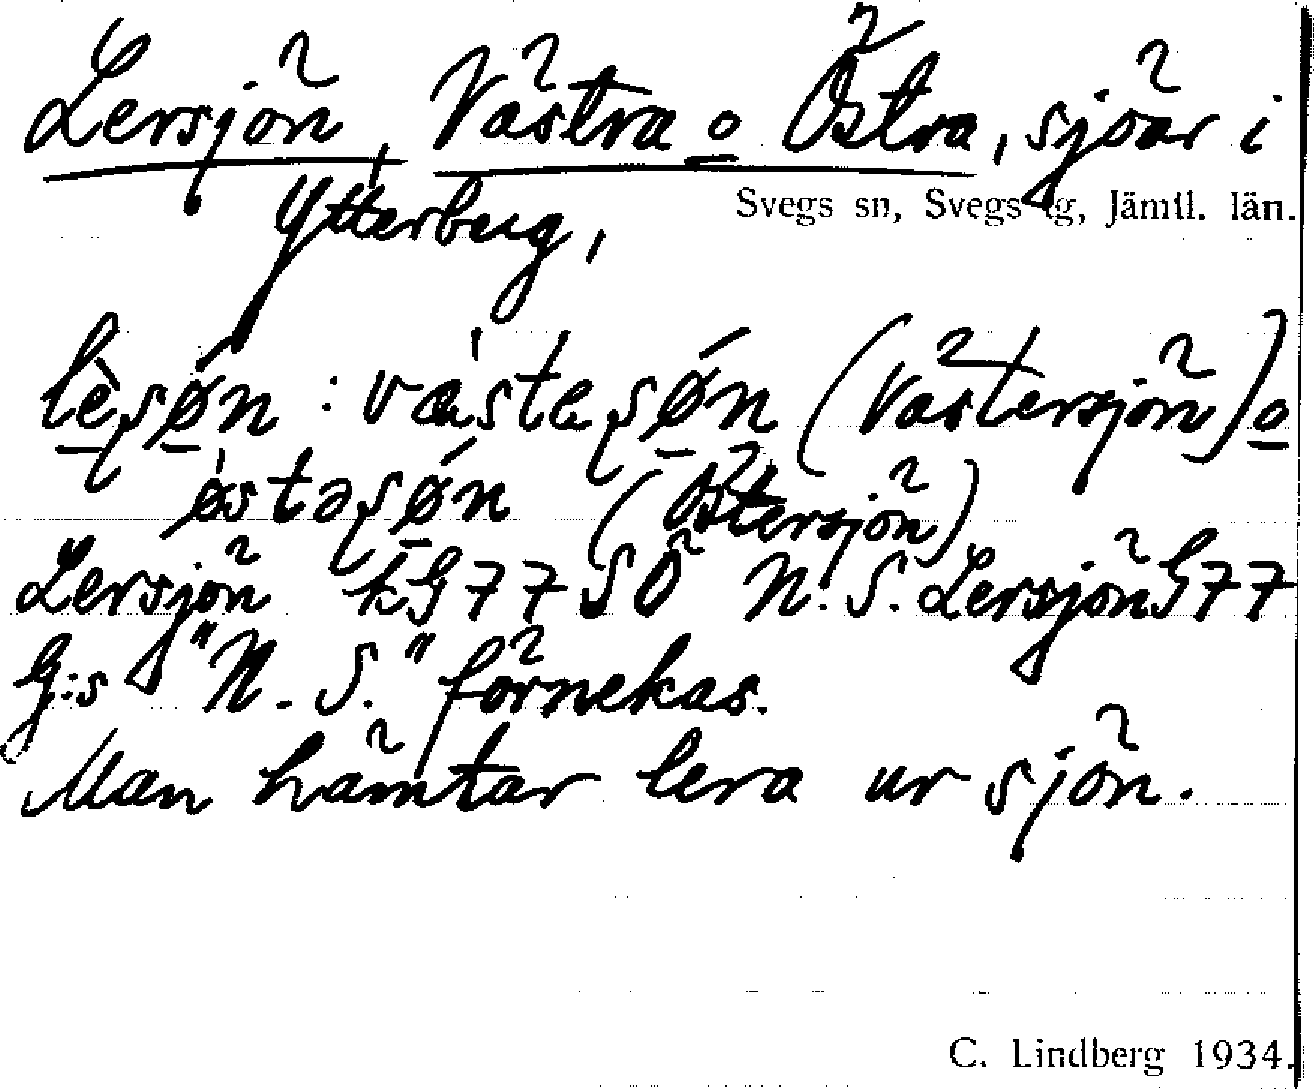 Lersjön, Västra o Östra, sjöar i
Svegs sn, Svegs tg, Jämtl. län.
Ytterberg,
lèʂøn : vǽstaʂǿn (Västersjön) o
ǿstəʂǿn (Östersjön)
Lersjön kG77 SÖ N. S. Lersjön G77
G:s "N. S." förnekas.
Man hämtar lera ur sjön.
C. Lindberg 1934.